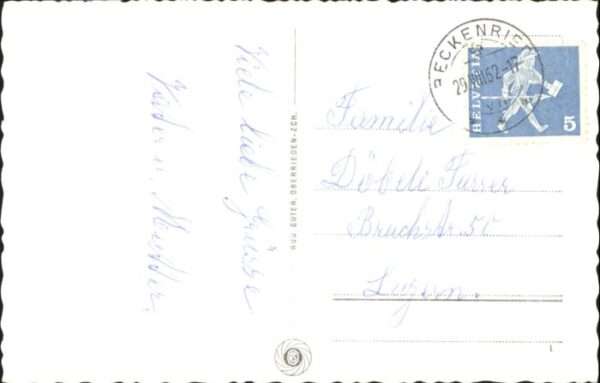 Viele liebe Grüsse
Vater u. Mutter.
HUU SUTER, OBERRIEDEN-ZCH.
BECKENRIED
HELVETIA
5
Familie
Döbeli Furrer
Bruchstr. 50
Luzern.